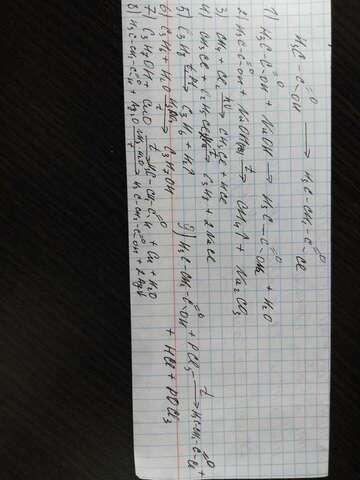 H₃C-C(=O)-OH → H₃C-CH₂-C(=O)-Cl
1) H₃C-C(=O)-OH + NaOH → H₃C-C(=O)-ONa + H₂O
2) H₃C-C(=O)-OH + NaOH →t CH₄↑ + Na₂CO₃
3) CH₄ + Cl₂ →hν CH₃Cl + HCl
4) CH₃Cl + + → C₃H₈ + 2NaCl
5) C₃H₈ →t, C₃H₆ + H₂↑
6) C₃H₆ + H₂O → C₃H₇OH
7) C₃H₇OH + CuO →t H₃C-CH₂-C(=O)-H + Cu + H₂O
8) H₃C-CH₂-C(=O)-H + Ag₂O → H₃C-CH₂-C(=O)-OH + 2Ag↓
9) H₃C-CH₂-C(=O)-OH + PCl₅ →t H₃C-CH₂-C(=O)-Cl +
+ HCl + POCl₃